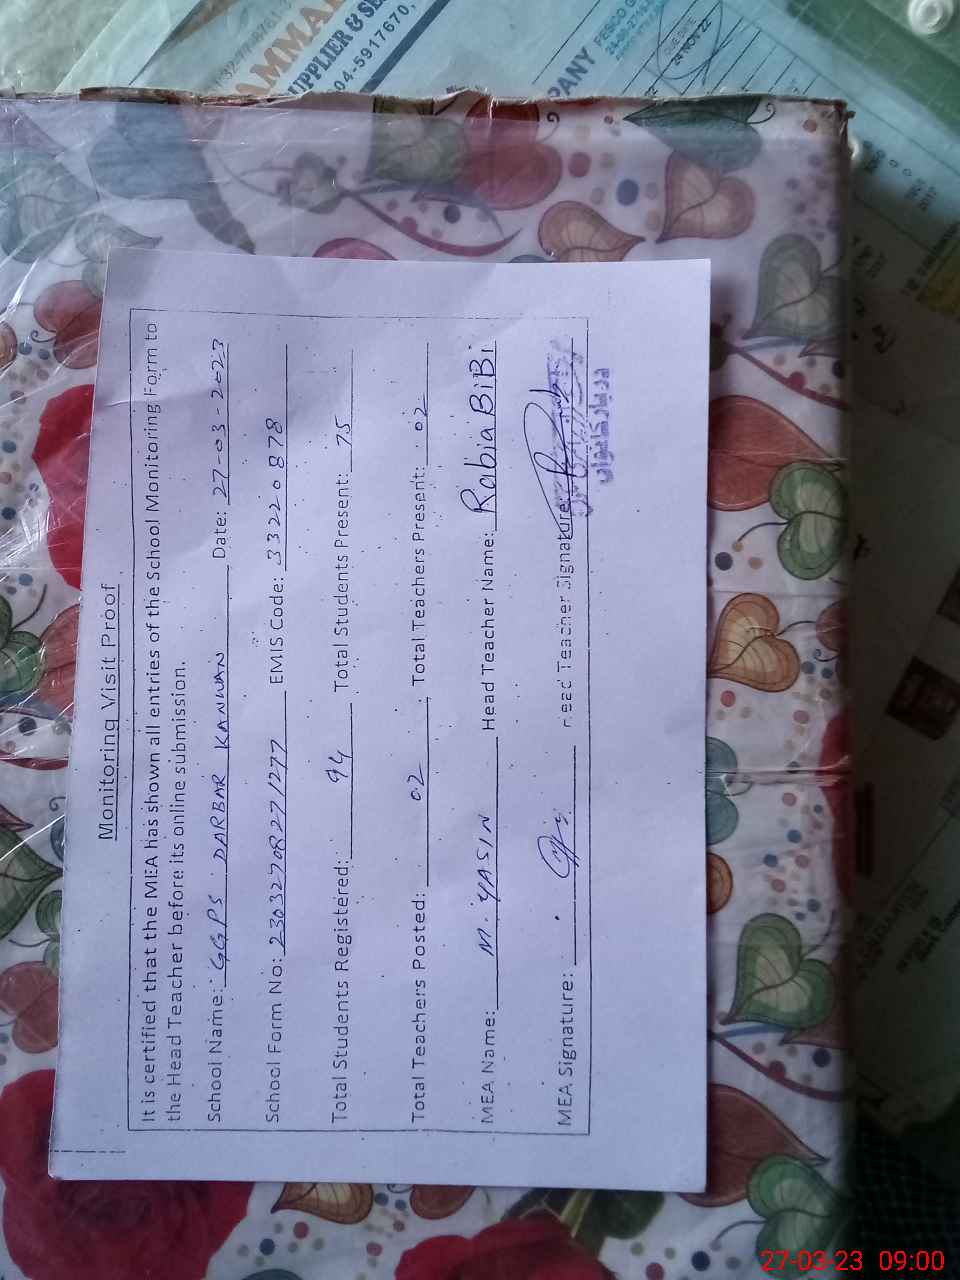 Monitoring Visit Proof
It is certified that the MEA has shown all entries of the School Monitoring Form to
the Head Teacher before its online submission.
School Name: GGPS DARBAR KANWAN Date: 27-03-2023
School Form No: 2303270827/277 EMIS Code: 33220878
Total Students Registered: 94 Total Students Present: 75
Total Teachers Posted: 02 Total Teachers Present: 02
MEA Name: M. YASIN Head Teacher Name: Rabia BiBi
MEA Signature: Head Teacher Signature:
SUPPLIER & SE
04-5917670,
PANY
FESCO
DUE DATE
24 NOV 22
27-03-23 09:00